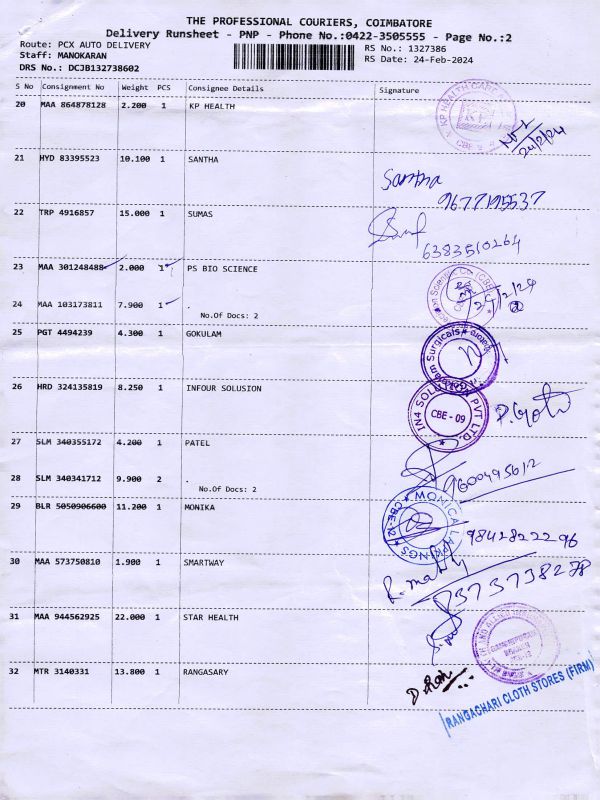 THE PROFESSIONAL COURIERS, COIMBATORE
Delivery Runsheet - PNP - Phone No.:0422-3505555 - Page No.:2
Route: PCX AUTO DELIVERY RS No.: 1327386
Staff: MANOKARAN RS Date: 24-Feb-2024
DRS No.: DCJB132738602
S No Consignment No Weight PCS Consignee Details Signature
20 MAA 864878128 2.200 1 KP HEALTH
24/2/24
21 HYD 83395523 10.100 1 SANTHA
Santha
9677195537
22 TRP 4916857 15.000 1 SUMAS
6383510264
23 MAA 301248488 2.000 1 PS BIO SCIENCE
24 MAA 103173811 7.900 1 .
No.Of Docs: 2
25 PGT 4494239 4.300 1 GOKULAM
26 HRD 324135819 8.250 1 INFOUR SOLUSION
IN4 SOLUTION PVT LTD.
CBE - 09
27 SLM 340355172 4.200 1 PATEL
28 SLM 340341712 9.900 2 .
No.Of Docs: 2
9600495612
29 BLR 5050906600 11.200 1 MONIKA
MONICA
CBE-12
9842822296
30 MAA 573750810 1.900 1 SMARTWAY
31 MAA 944562925 22.000 1 STAR HEALTH
32 MTR 3140331 13.800 1 RANGASARY
RANGACHARI CLOTH STORES (FIRM)